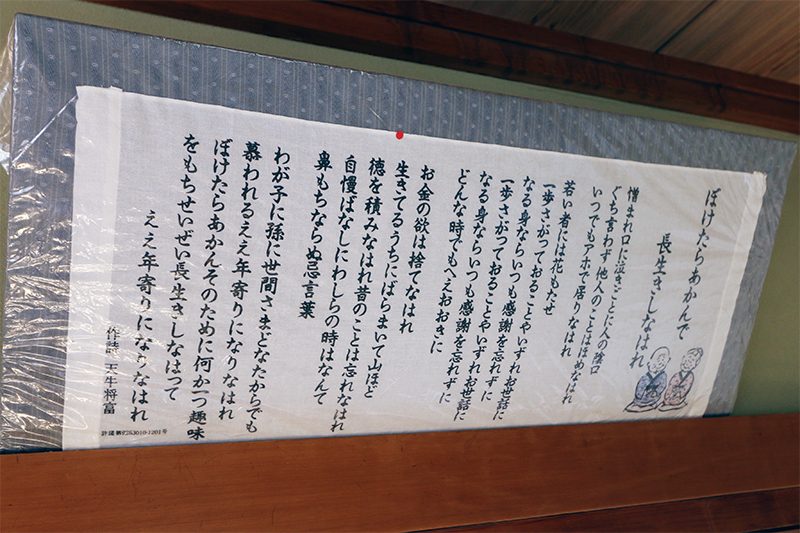 ぼけたらあかんで
長生きしなはれ
憎まれ口に泣きごとに人の陰口
ぐち言わず他人のことはほめなはれ
いつでもアホで居りなはれ
若い者には花もたせ
一歩さがっておることやいずれお世話に
なる身ならいつも感謝を忘れずに
一歩さがっておることやいずれお世話に
なる身ならいつも感謝を忘れずに
どんな時でもへえおおきに
お金の欲は捨てなはれ
生きてるうちにばらまいて山ほど
徳を積みなはれ昔のことは忘れなはれ
自慢ばなしにわしらの時はなんて
鼻もちならぬ忌言葉
わが子に孫に世間さまどなたからでも
慕われるええ年寄りになりなはれ
ぼけたらあかんそのために何か一つ趣味
をもちせいぜい長生きしなはって
ええ年寄りになりなはれ
作詩 天牛将富